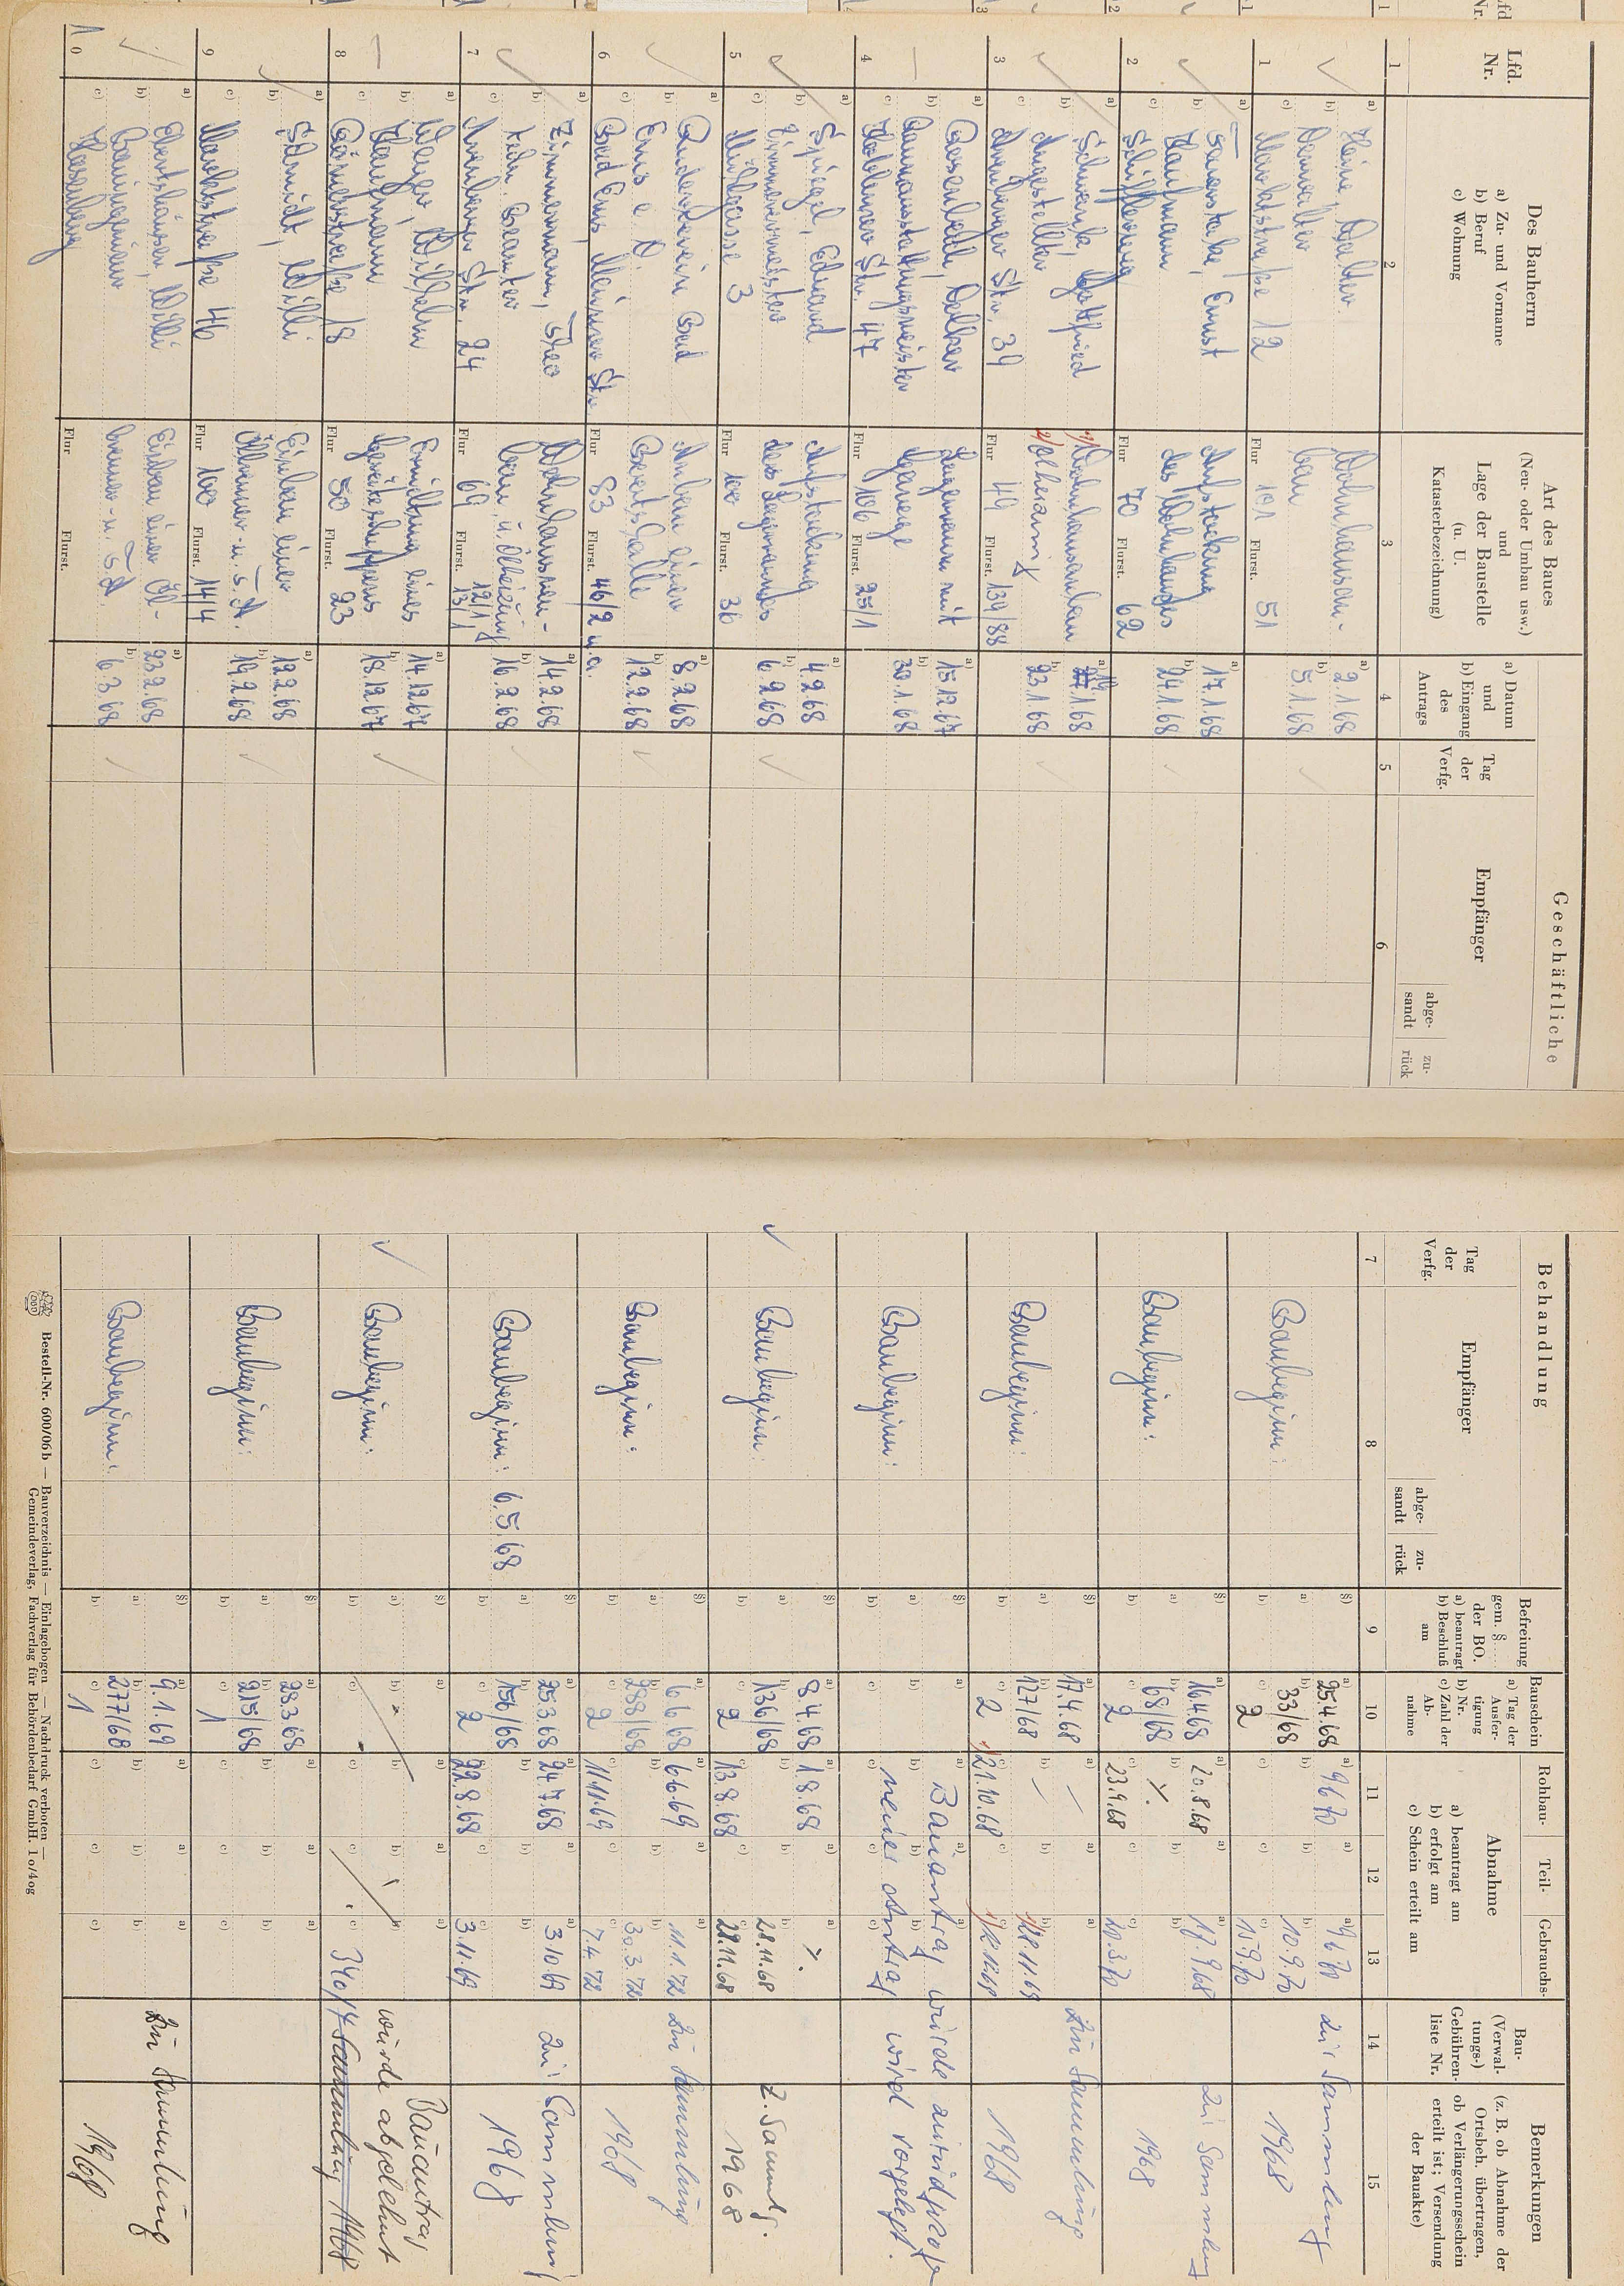 Geschäftliche
Lfd. Nr.
Des Bauherrn
a) Zu- und Vorname
b) Beruf
c) Wohnung
Art des Baues
(Neu- oder Umbau usw.)
und
Lage der Baustelle
(u. U.
Katasterbezeichnung)
a) Datum
und
b) Eingang
des
Antrags
Tag
der
Verfg.
Empfänger
abge-
sandt
zu-
rück
1 2 3 4 5 6
1
a) Heine, Walter.
b) Verwalter
c) Marktstraße 12
Wohnhausan-
bau
Flur 101 Flurst. 51
a) 2.1.68
b) 5.1.68
2
a) Faßenstake, Ernst
b) Kaufmann
c) Schifflerweg
Aufstockung
des Wohnhauses
Flur 70 Flurst. 62
a) 17.1.68
b) 24.1.68
3
a) Schwenk, Gottfried
b) Angestellter
c) Arenberger Str. 39
1) Wohnhausanbau
2) Ölheizung
Flur 49 Flurst. 139/88
a) 19.1.68
b) 23.1.68
4
b) Raumausstattungsmeister
c) Koblenzer Str. 47
Lagerraum mit
Garage
Flur 106 Flurst. 25/1
a) 15.12.67
b) 30.1.68
5
a) Spiegel, Eduard
b) Zimmermeister
c) Mühlgasse 3
Aufstockung
des Lagerraumes
Flur 100 Flurst. 36
a) 4.2.68
b) 6.2.68
6
a) Ruderverein Bad
b) Ems e.V.
c) Bad Ems, Mainzer Str.
Anbau einer
Bootshalle
Flur 83 Flurst. 46/2 u.a.
a) 8.2.68
b) 12.2.68
7
a) Zimmermann, Theo
b) techn. Beamter
c) Arenberger Str. 24
Wohnhausneu-
bau u. Ölheizung
Flur 69 Flurst. 12/1 13/1
a) 14.2.68
b) 16.2.68
8
a) Weyer, Wilhelm
b) Kaufmann
c) Römerstraße 18
Errichtung eines
Geräteschuppens
Flur 50 Flurst. 23
a) 14.12.67
b) 18.12.67
9
a) Schmidt, Willi
b)
c) Marktstraße 46
Einbau einer
Ölbrenner- u. T.A.
Flur 100 Flurst. 14/4
a) 12.2.68
b) 19.2.68
10
b) Bauingenieur
c) Hasenberg
Einbau einer Öl-
brenner- u. T.A.
Flur Flurst.
a) 23.2.68
b) 6.3.68
Behandlung
Tag
der
Verfg.
Empfänger
abge-
sandt
zu-
rück
Befreiung
gem. §
der BO.
a) beantragt
b) Beschluß
am
Bauschein
a) Tag der
Ausfer-
tigung
b) Nr.
c) Zahl der
Ab-
nahme
Rohbau-
Teil-
Gebrauchs-
Abnahme
a) beantragt am
b) erfolgt am
c) Schein erteilt am
Bau-
(Verwal-
tungs-)
Gebühren-
liste Nr.
Bemerkungen
(z. B. ob Abnahme der
Ortsbeh. übertragen,
ob Verlängerungsschein
erteilt ist; Versendung
der Bauakte)
7 8 9 10 11 12 13 14 15
Baubeginn:
a) 25.4.68
b) 33/68
c) 2
a) 9.6.70
a) 9.6.70
b) 10.9.70
c) 15.9.70
zur Sammlung
1968
Baubeginn:
a) 16.4.68
b) 68/68
c) 2
a) 20.8.68
b) ./.
c) 23.9.68
a) 17.9.68
c) 20.3.70
zur Sammlung
1968
Baubeginn:
a) 17.4.68
b) 127/68
c) 2
c) 1) 21.10.68
b) 1) 28.11.69
c) 1) 2.12.69
zur Sammlung
1968
Baubeginn:
Bauantrag wurde zurückgezogen
neuer Antrag wird vorgelegt.
Baubeginn:
a) 8.4.68
b) 136/68
c) 2
a) 1.8.68
c) 13.8.68
a) ./.
b) 28.11.68
c) 28.11.68
z. Sammlg.
1968
Baubeginn:
a) 6.6.68
b) 288/68
c) 2
a) 6.6.69
c) 11.11.69
a) 11.1.72
b) 30.3.72
c) 7.4.72
zur Sammlung
1968
Baubeginn: 6.5.68
a) 25.3.68
b) 156/68
c) 2
a) 24.7.68
c) 22.8.68
a) 3.10.69
c) 3.11.69
zur Sammlung
1968
Baubeginn:
Bauantrag
wurde abgelehnt
Sammlung 1968
Baubeginn:
a) 28.3.68
b) 215/68
c) 1
Baubeginn:
a) 9.1.69
b) 277/68
c) 1
zur Sammlung
1968
Bestell-Nr. 600/06b — Bauverzeichnis — Einlagebogen — Nachdruck verboten —
Gemeindeverlag, Fachverlag für Behördenbedarf GmbH. 1 o/4 og